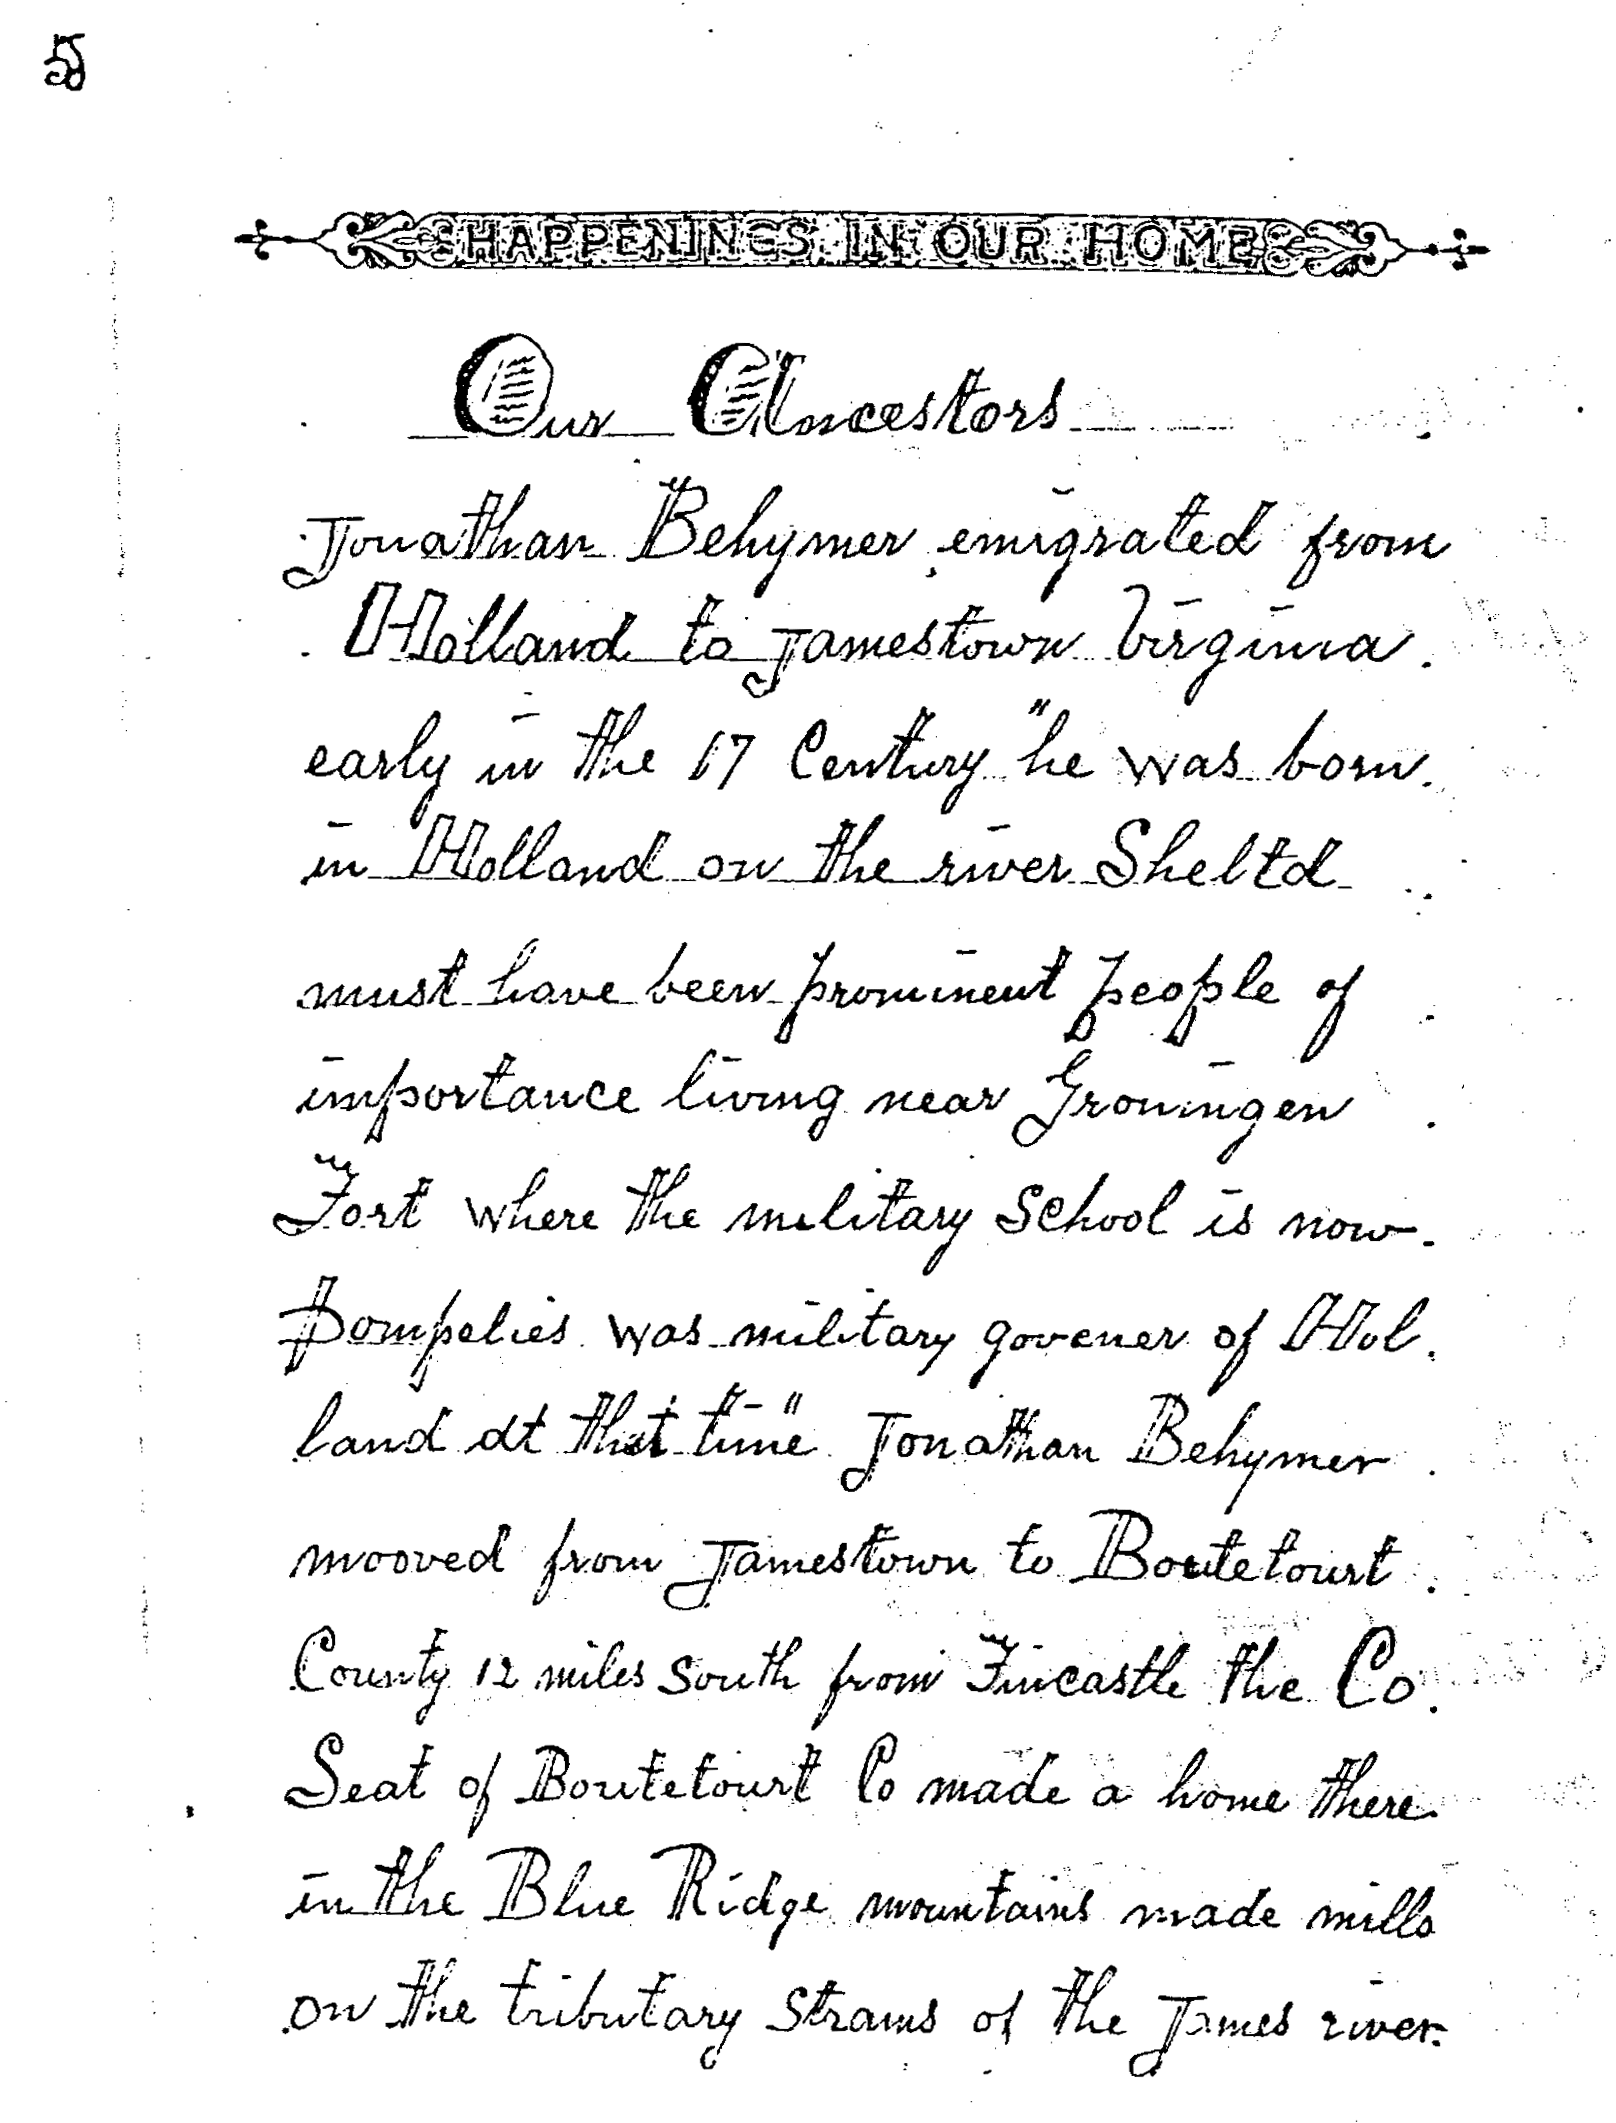 5
HAPPENINGS IN OUR HOME
Our Ancestors
Jonathan Behymer emigrated from
Holland to Jamestown Virginia
early in the 17 Century "he was born
in Holland on the river Sheltd
must have been prominent people of
importance living near Groningen
Fort where the military School is now
Pompelies was military govener of Hol
land at that time" Jonathan Behymer
mooved from Jamestown to Boutetourt
County 12 miles South from Fincastle the Co.
Seat of Boutetourt Co made a home there
in the Blue Ridge mountains made mills
on the tributary Strams of the James river.